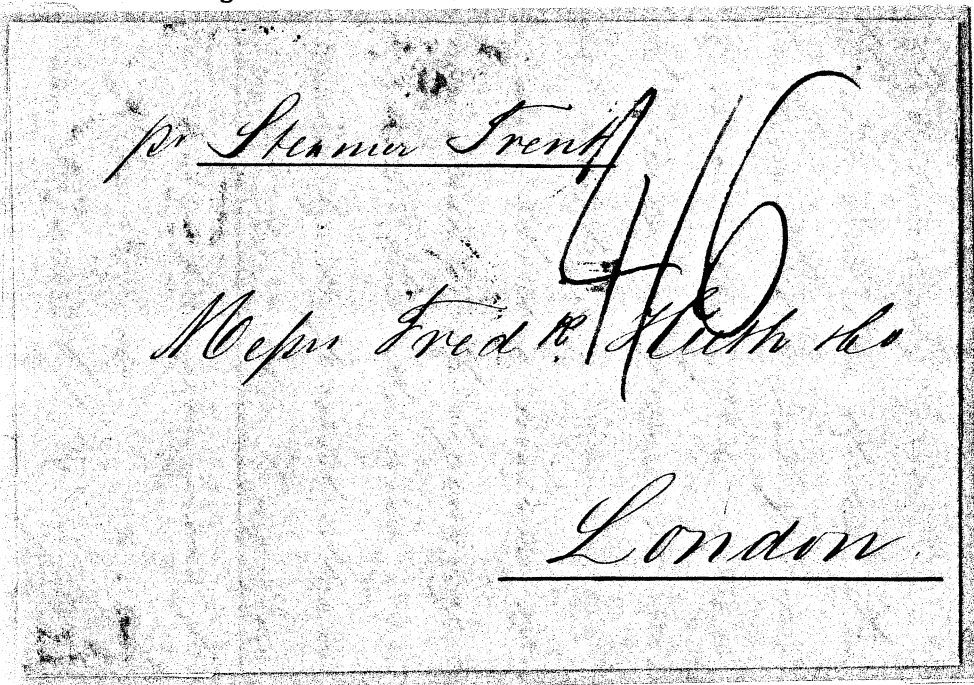 pr Steamer Trent
4/6
Messrs Fredk Huth & Co
London.